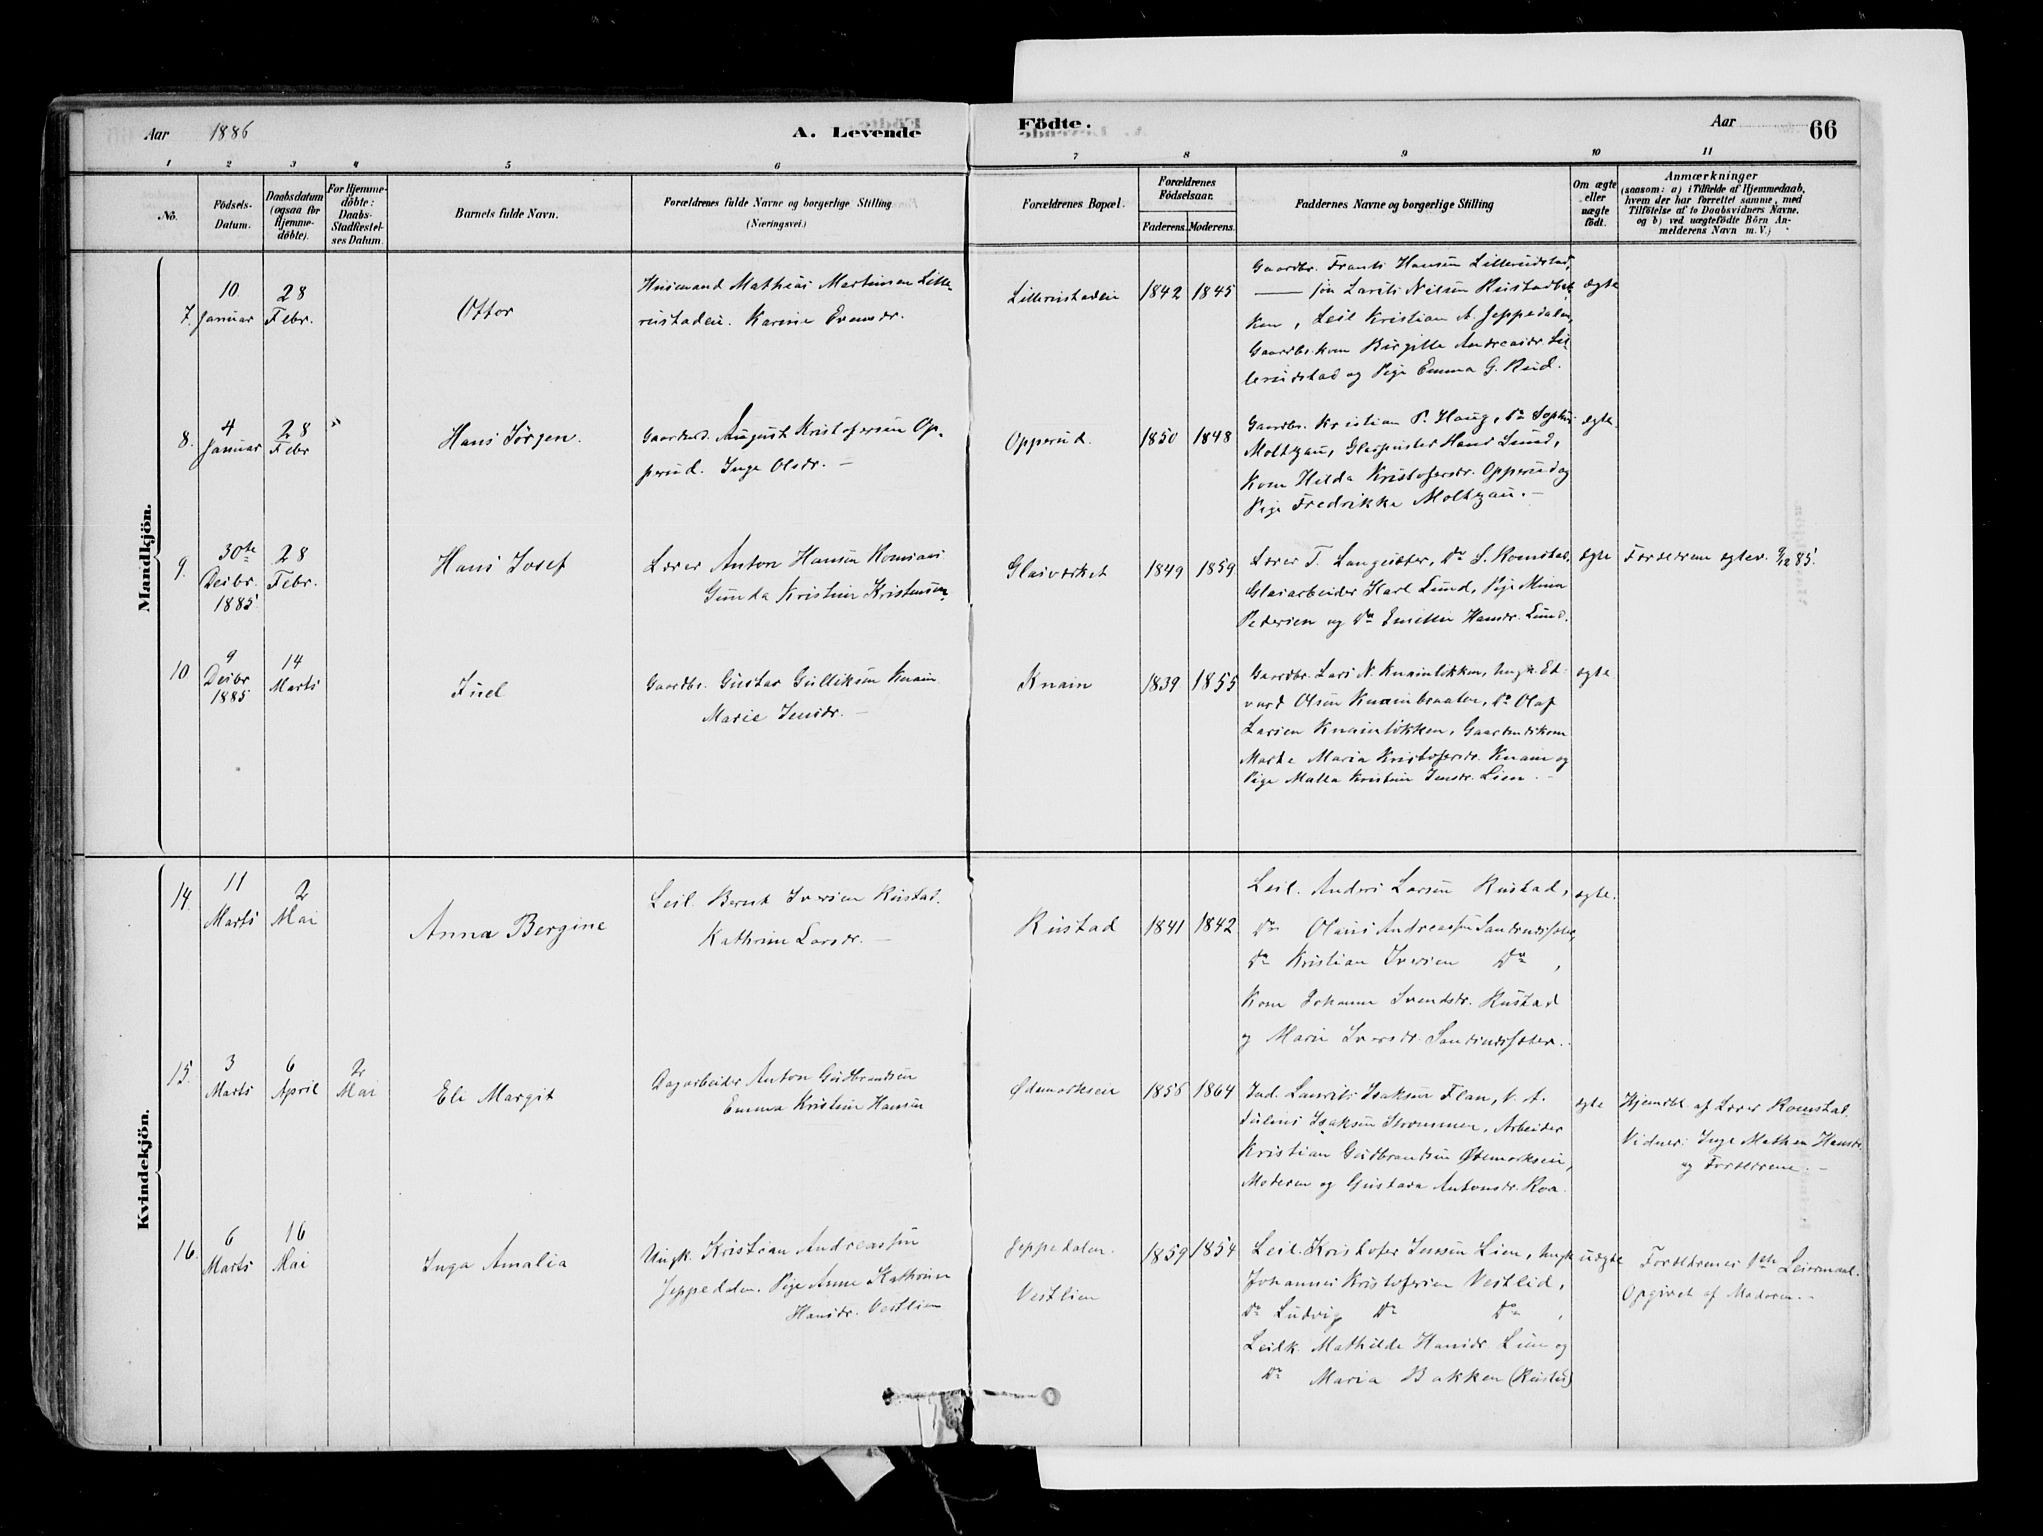 Aar 1886 A. Levende Födte. Aar 66
1 2 3 4 5 6 7 8 9 10 11
No.
Födsels-Datum.
Daabsdatum (ogsaa for Hjemme-döbte).
For Hjemme-döbte: Daabs-Stadfæstel-ses Datum.
Barnets fulde Navn.
Forældrenes fulde Navne og borgerlige Stilling (Næringsvei.)
Forældrenes Bopæl.
Forældrenes Födselsaar.
Faderens. Moderens.
Faddernes Navne og borgerlige Stilling
Om ægte eller uægte födt.
Anmærkninger
(saasom: a) i Tilfælde af Hjemmedaab, hvem der har forrettet samme, med Tilföielse af to Daabsvidners Navne, og b) ved uægtefödte Börn An-melderens Navn m. V.)
Mandkjön.
7. 10 Januar
28 Febr.
Ottor
Husmand Mathias Martinsen Lille-
rustadeie. Karine Evensdr.
Lillerustadeie
1842 1845
Gaardbr. Frants Hansen Lillerudstad,
Larits Nilsen Rustadbak-
ken, Leil Kristian A. Jeppedalen,
Gaardbr.kone Birgitte Andreasdr. Lil-
lerudstad og Pige Emma G. Rud.
ægte
8. 4 Januar
28 Febr
Hans Jörgen.
Gaardbr. August Kristofersen Op-
perud. Inge Olsdr. —
Opperud.
1850 1848
Gaardbr. Kristian P. Haug, Do Sophus
Moltzau, Glaspuster Hans Lund,
Kone Hilda Kristofersdr. Opperud og
Pige Fredrikke Moltzau. —
ægte.
9. 30te Decbr. 1885
28 Febr.
Hans Josef
Lærer Anton Hansen Romsaas
Gunda Kristine Kristensen
Glasværket
1849 1859
Lærer T. Langsæter, Do S. Romstad,
Glasarbeider Karl Lund, Pige Mina
Pedersen og Do Emilie Hansdr. Lund.
ægte
Forældrene ægtev. 9/12 85.
10 9 Decbr 1885
14 Marts
Juel
Gaardbr. Gustav Gulliksen Knain
Marie Jensdr. —
Knain
1839 1855
Gaardbr. Lars N. Knainlökken, Ungk. Ed-
vard Olsen Knainbraaten, Do Olaf
Larsen Knainlökken, Gaardmdskone
Marthe Maria Kristofersdr. Knain og
Pige Mathea Kristine Jensdr. Lien. —
ægte
Kvindekjön.
14. 11 Marts
2 Mai
Anna Bergine
Leil. Bernt Iversen Rustad.
Kathrine Larsdr. —
Rustad
1841 1842
Leil. Anders Larsen Rustad,
Do Olaus Andreassen Sandrudsæter,
Do Kristian Iversen Do,
Kone Johanne Svendsdr. Rustad
og Marie Iversdr. Sandrudsæter.
ægte.
15. 3 Marts
6 April
2 Mai
Eli Margit
Dagarbeider Anton Gudbrandsen
Emma Kristine Hansen
Ödemarkseie
1856 1864
Ind. Laurits Isaksen Flan, V. A.
Julius Isaksen Strømmen, Arbeider
Kristian Gudbrandsen Ödemarkseie,
Moderen og Gustava Antonsdr. Roa.
ægte
Hjemdbt. af Lærer Romstad.
Vidner: Inge Mathea Hansdr.
og Forældrene. —
16. 6 Marts
16 Mai
Inga Amalia
Ungk. Kristian Andreassen
Jeppedalen. Pige Anne Kathrine
Hansdr. Vestlien
Jeppedalen.
Vestlien
1859 1854
Leil. Kristofer Jensen Lien, Ungk
Johannes Kristofersen Vestlid,
Do Ludvig Do Do,
Leilk. Mathilde Hansdr. Lien og
Do Maria Bakken (Rustad)
uægte
Forældrenes 1ste Leiermaal.
Opgivet af Moderen. —